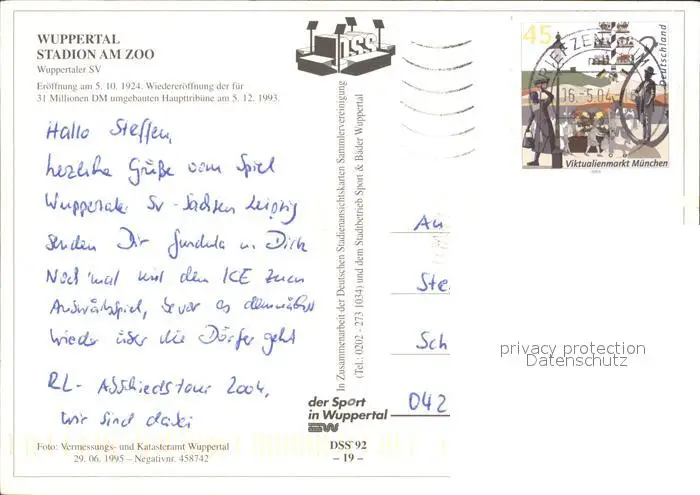 WUPPERTAL
STADION AM ZOO
Wuppertaler SV
Eröffnung am 5. 10. 1924. Wiedereröffnung der für
31 Millionen DM umgebauten Haupttribüne am 5. 12. 1993.
Hallo Steffen,
herzliche Grüße vom Spiel
Wuppertaler SV - Sachsen Leipzig
senden Dir Gundula u. Dirk
Noch 'mal mit dem ICE zum
Auswärtsspiel, bevor es demnächst
wieder über die Dörfer geht
RL - Abschiedstour 2004,
wir sind dabei
Foto: Vermessungs- und Katasteramt Wuppertal
29. 06. 1995 – Negativnr. 458742
DSS
In Zusammenarbeit der Deutschen Stadionansichtskarten Sammlervereinigung
(Tel.: 0202 - 273 1034) und dem Stadtbetrieb Sport & Bäder Wuppertal
der Sport
in Wuppertal
DSS'92
– 19 –
45
Deutschland
BRIEFZENTRUM
16.-5.04
Viktualienmarkt München
An
Ste
Sch
042
privacy protection
Datenschutz